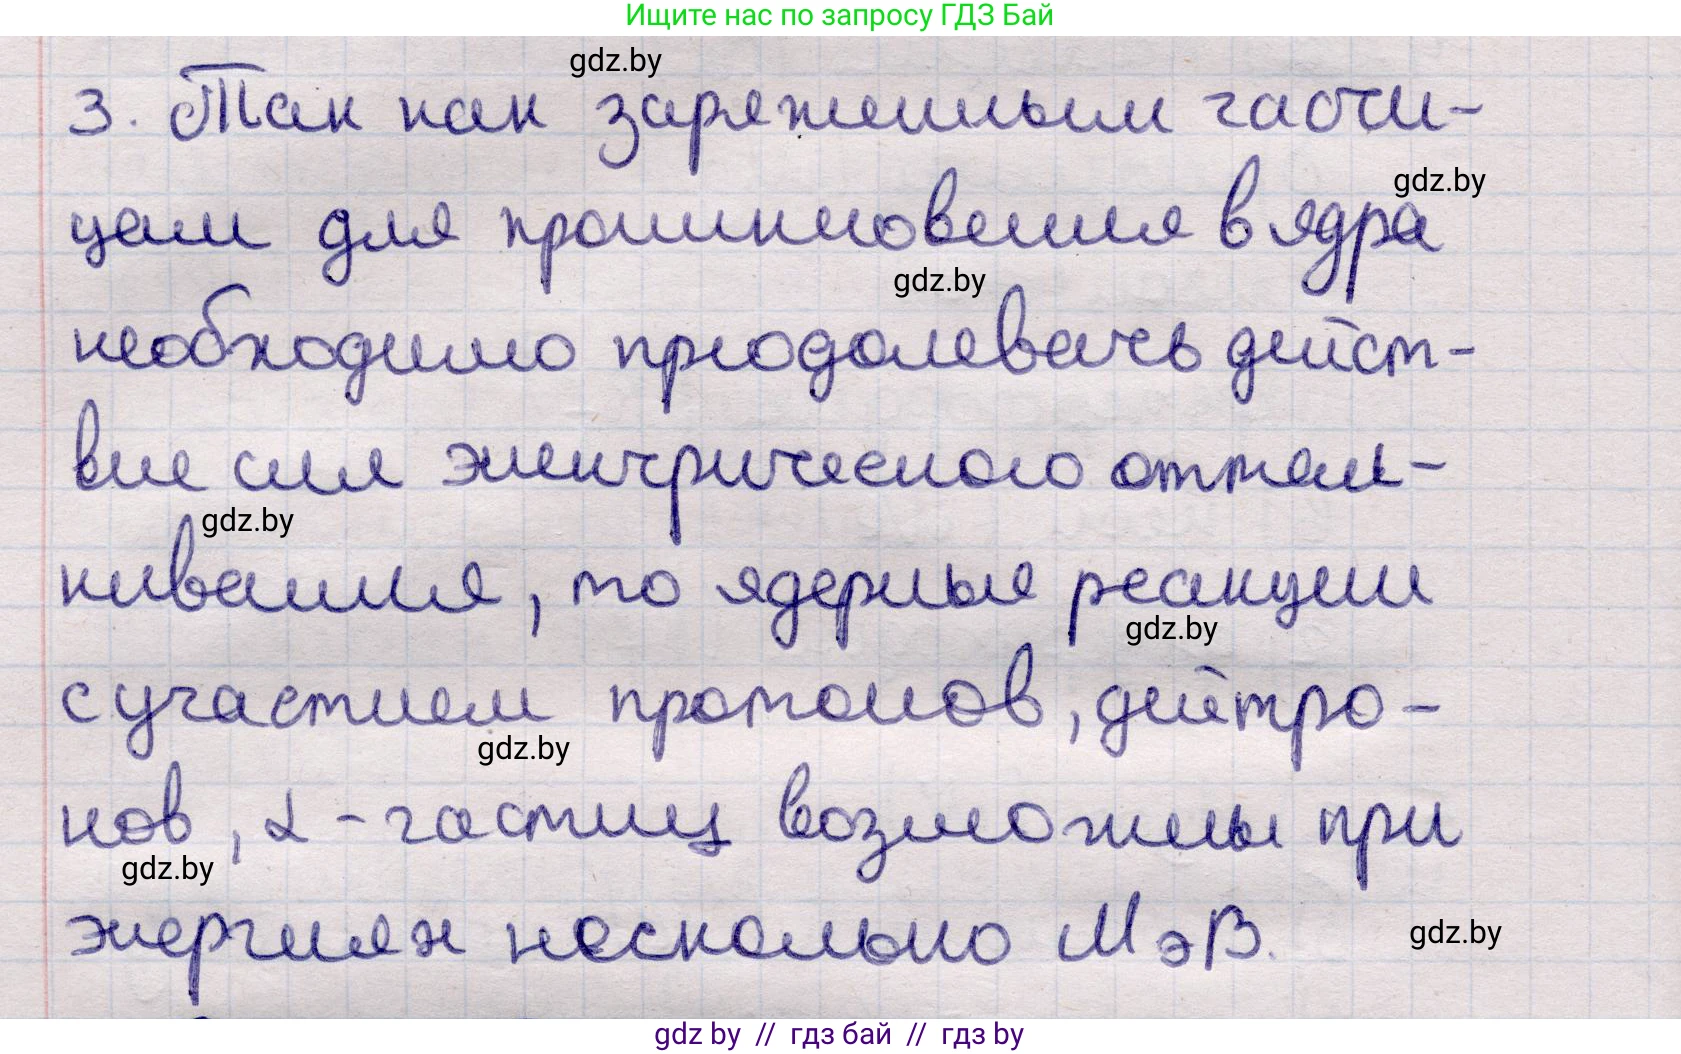 Ищите нас по запросу ГДЗ Бай
gdz.by
3. Так как заряженным части-
gdz.by
цам для проникновения в ядра
gdz.by
необходимо приодолевать дейст-
вие сил электрического оттал-
gdz.by
кивания, то ядерные реакции
gdz.by
с участием протонов, дейтро-
gdz.by
нов, α-частиц возможны при
gdz.by
энергиях несколько МэВ.
gdz.by
gdz by // гдз бай // гдз by